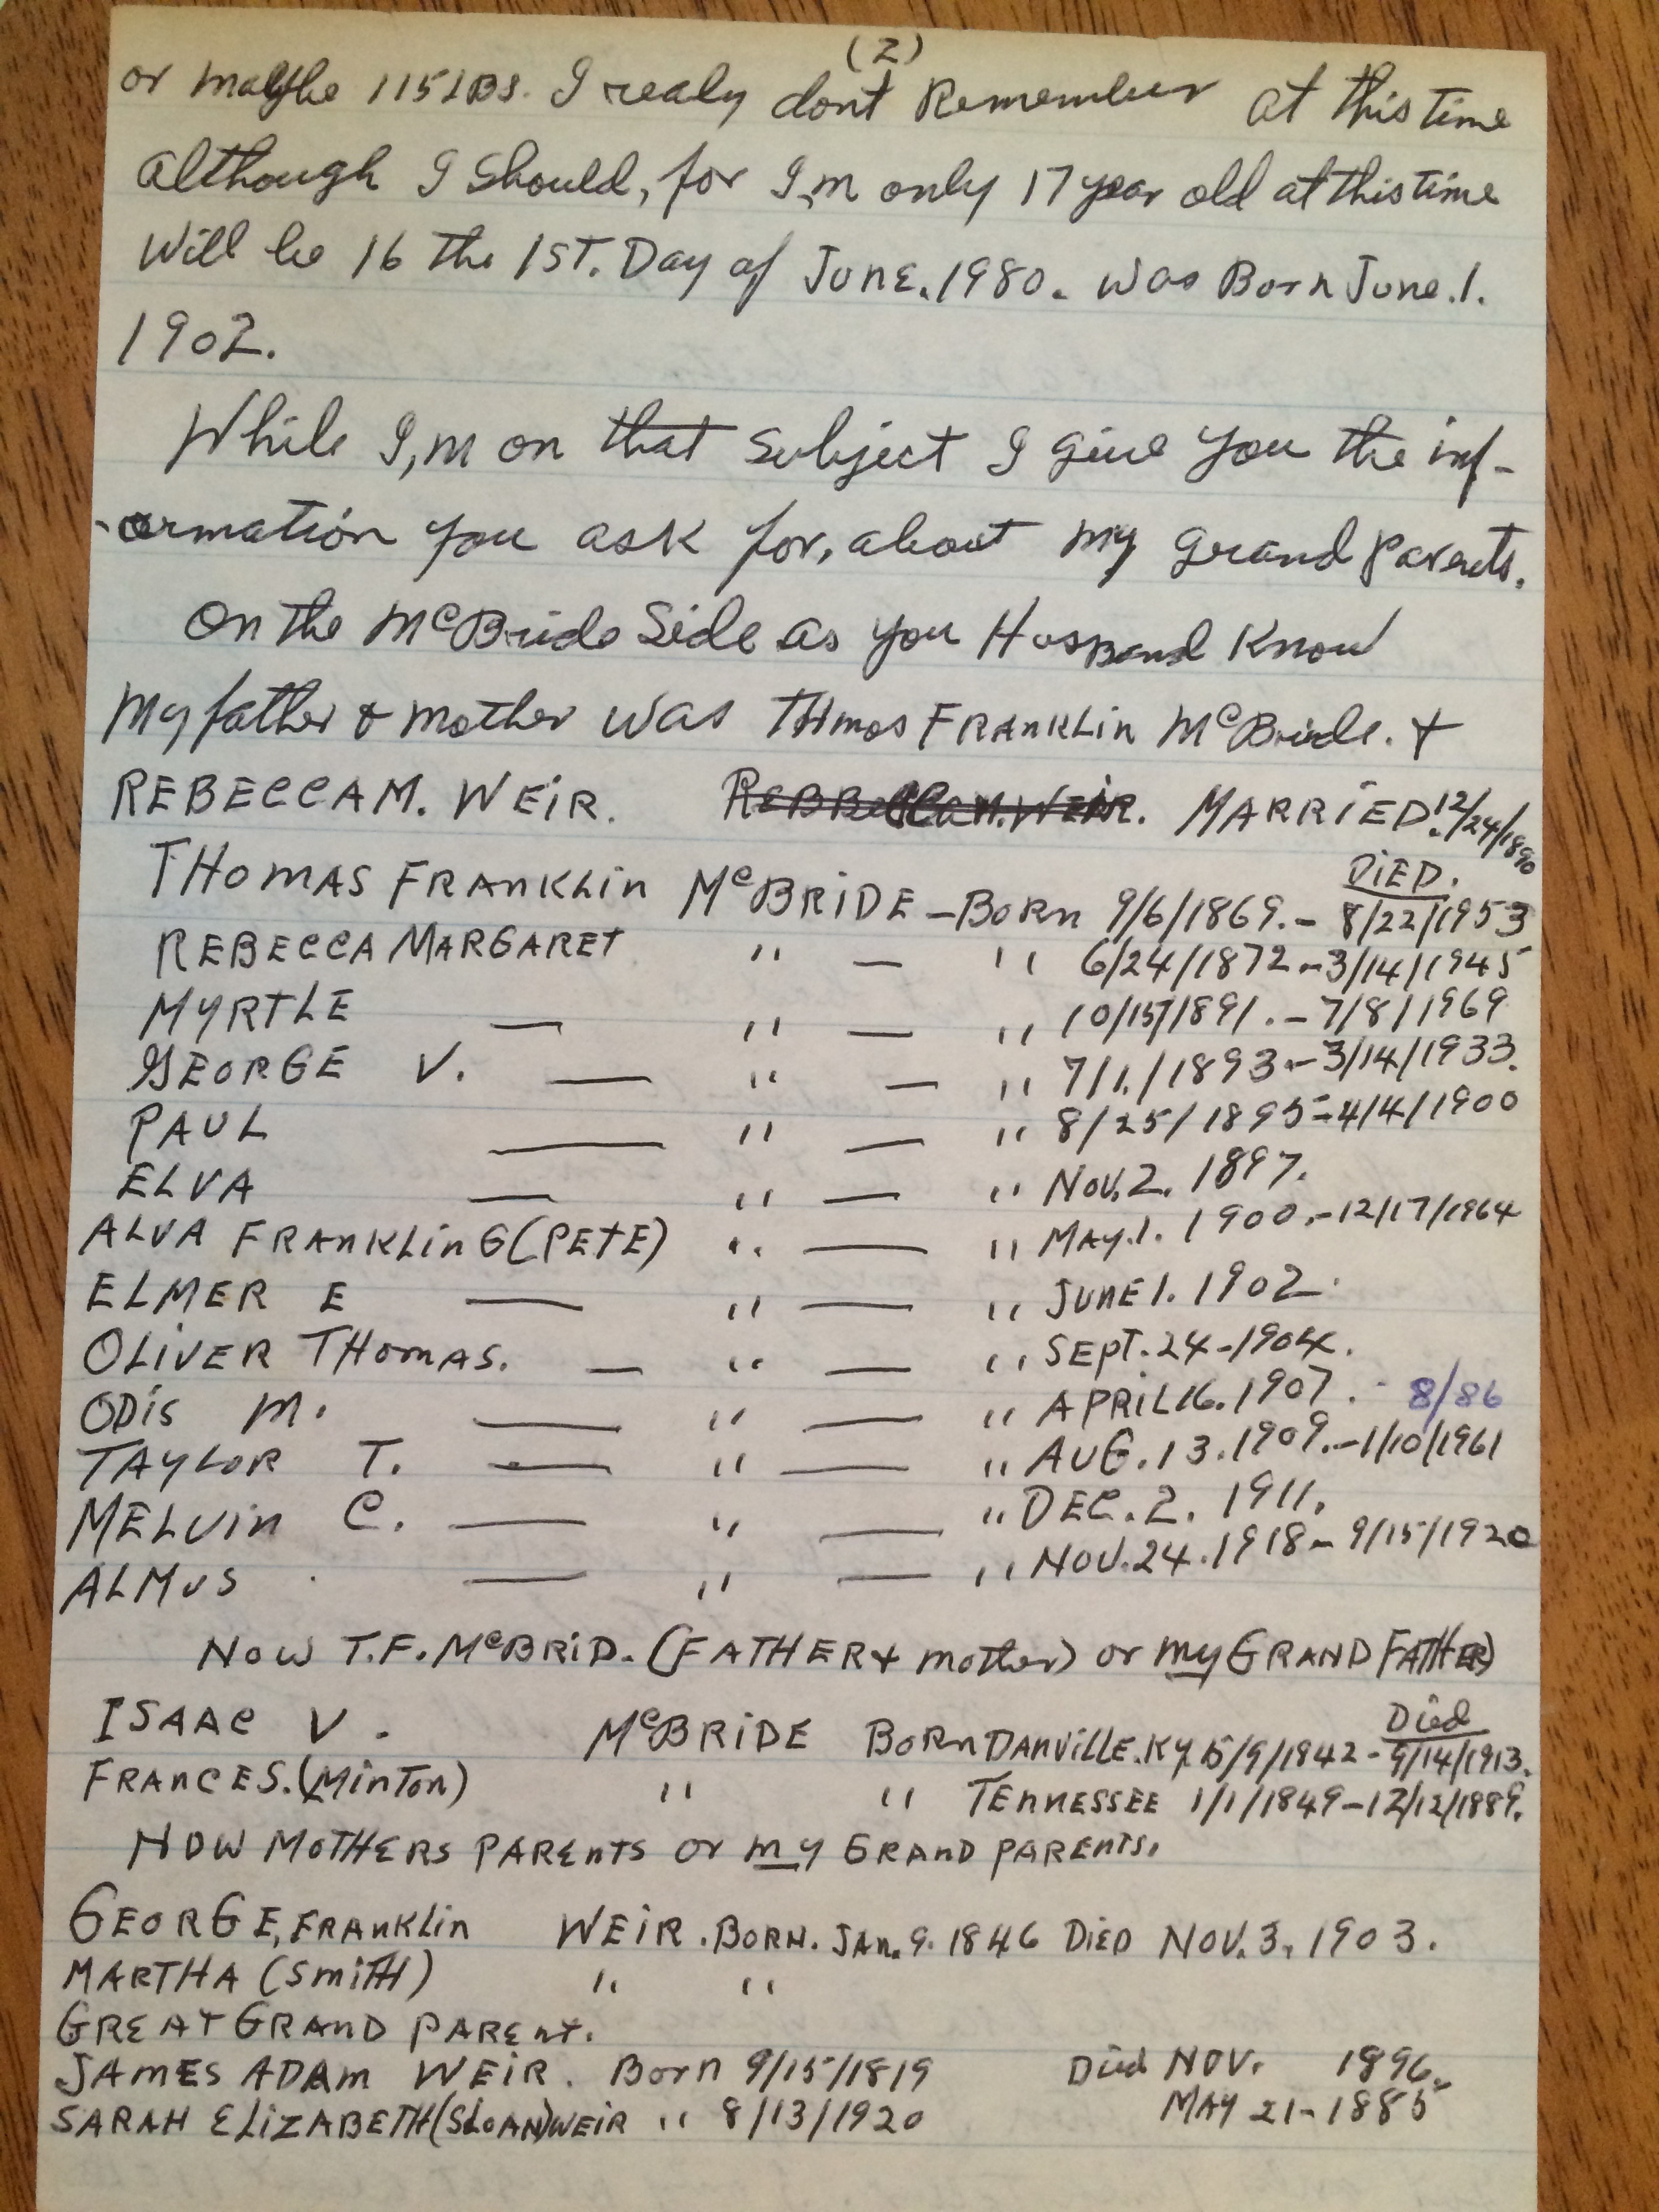 (2)
or maybe 115 LBS. I realy dont Remember at this time
although I should, for I,m only 17 year old at this time
Will be 16 the 1ST. Day of JUNE. 1980. was Born June. 1.
1902.
While I,m on that subject I give you the inf-
-ormation you ask for, about my grand parents.
On the McBride Side as you Husband Know
My father & mother was THmos FRANKLin McBride. &
REBECCA M. WEiR. MARRiED. 12/24/1890
DiED.
THOMAS FRANKLin McBRiDE - BORn 9/6/1869. - 8/22/1953
REBECCA MARGARET " — " 6/24/1872 - 3/14/1945
MYRTLE — " — " 10/15/1891. - 7/8/1969
GEORGE V. — " — " 7/1./1893 - 3/14/1933.
PAUL — " — " 8/25/1895 - 4/4/1900
ELVA — " — " NOV. 2. 1897.
ALVA FRANKLinG (PETE) " — " MAY. 1. 1900. - 12/17/1964
ELMER E — " — " JUNE 1. 1902.
OLiVER THOMAS. — " — " SEPT. 24 - 1904.
ODiS M. — " — " APRiL 16. 1907. - 8/86
TAYLOR T. — " — " AUG. 13. 1909. - 1/10/1961
MELVin C. — " — " DEC. 2. 1911.
ALMUS — " — " NOV. 24. 1918 - 9/15/1920
NOW T.F. McBRiD. (FATHER & mother) or my GRAND FATHER)
Died
ISAAC V. McBRiDE BORn DANViLLE. KY. 5/9/1842 - 9/14/1913.
FRANCES. (MinTon) " " TEnnESSEE 1/1/1849 - 12/12/1889.
NOW MOTHERS PARENTS or my GRAND PARENTS.
GEORGE, FRANKLin WEiR. BORN. JAN. 9. 1846 DiED NOV. 3, 1903.
MARTHA (SmiTH) " "
GREAT GRAND PAREnt.
JAMES ADAM WEiR. Born 9/15/1819 Died NOV. 1896.
SARAH ELiZABETH (SLOAN) WEiR " 8/13/1920 MAY 21 - 1885